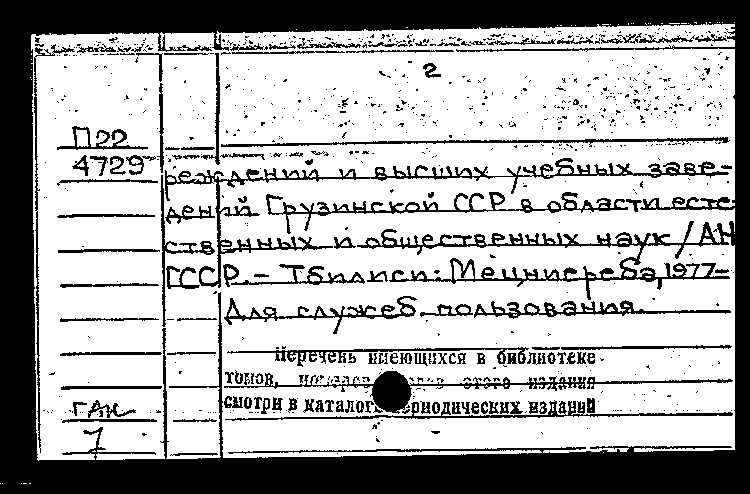 2
П22
4729
реждений и высших учебных заве-
дений Грузинской ССР в области есте-
ственных и общественных наук / АН
ГССР. – Тбилиси: Мецниереба, 1977–
Для служеб. пользования.
Перечень имеющихся в библиотеке
томов, этого издания
смотри в каталоге периодических изданий
ГАК
7